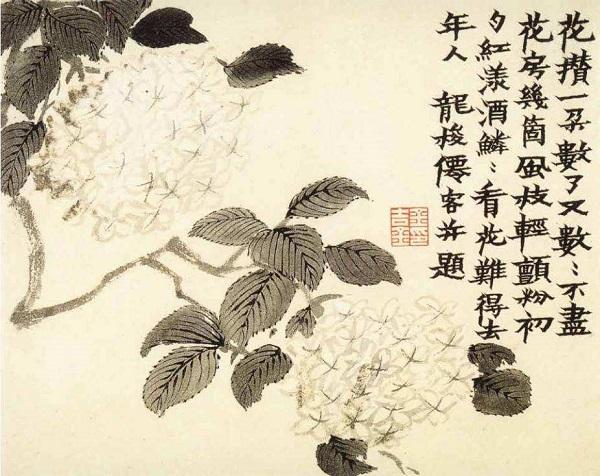 花攢一朶數了又數〻不盡
花房幾箇風枝輕顫粉初
夕紅漾酒鱗〻看花難得去
年人 龍梭僊客并題